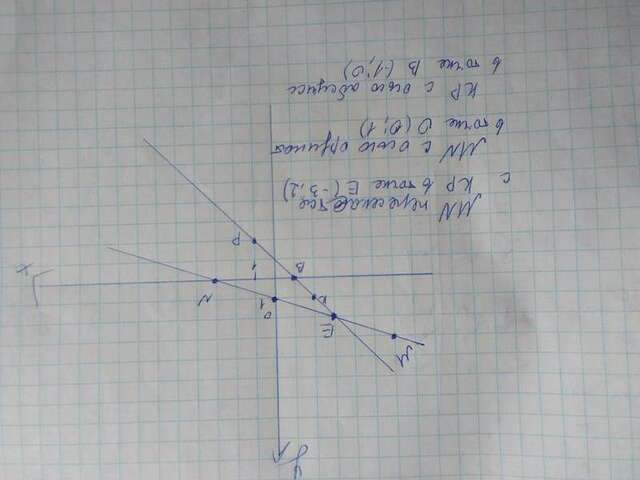 y
M
E
O
1
K
N
B
1
x
P
MN пересекается
с KP в точке E (-3; 2)
MN с осью ординат
в точке O (0; 1)
KP с осью абсцисс
в точке B (-1; 0)